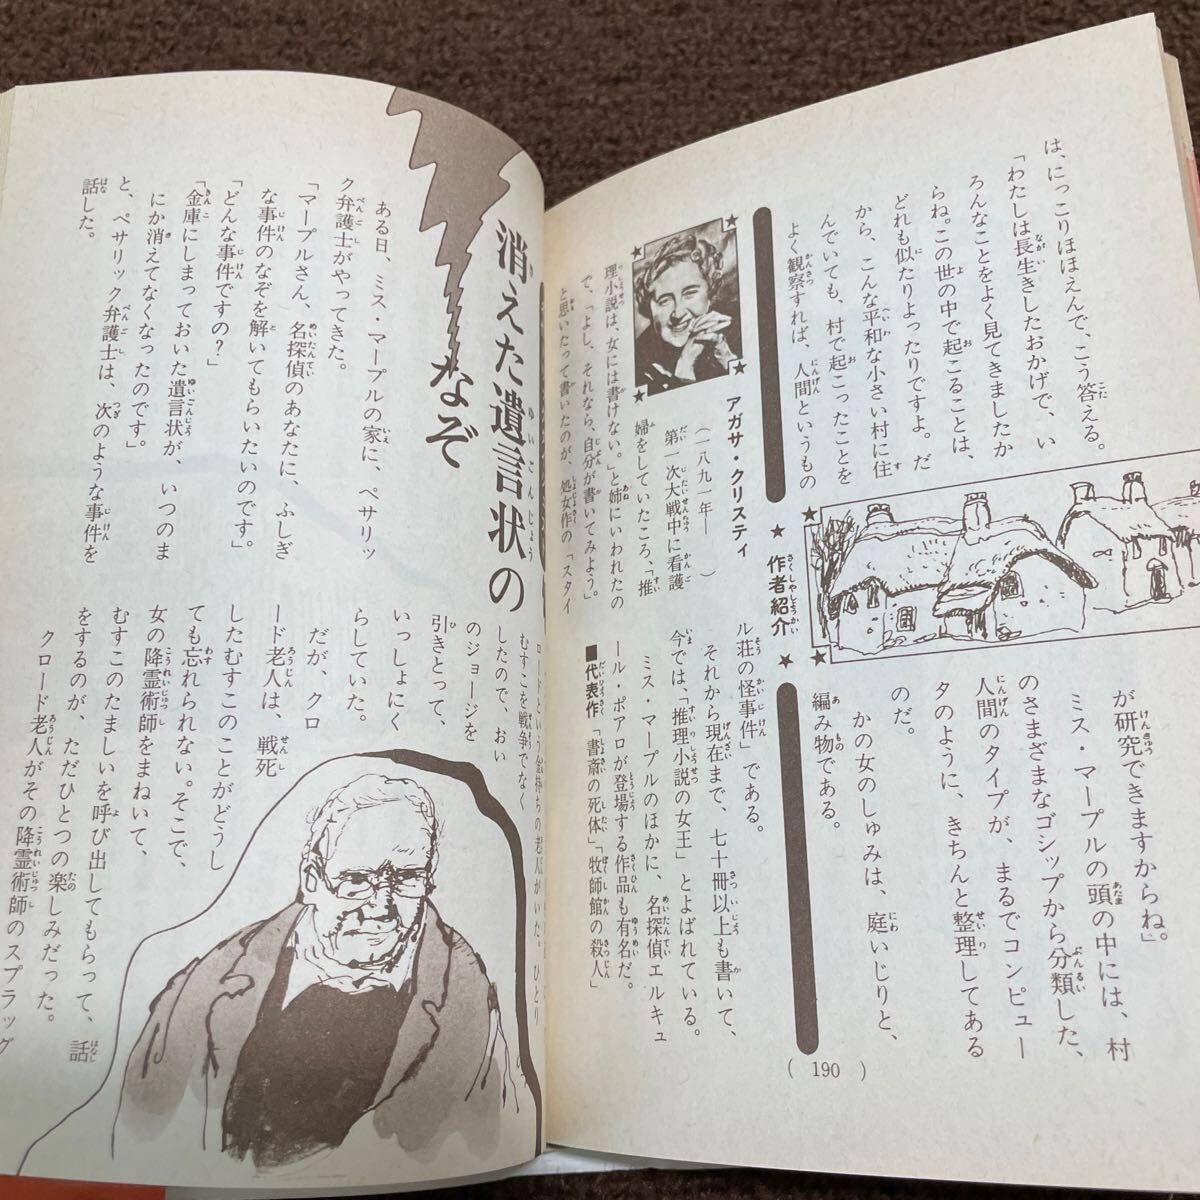 は、にっこりほほえんで、こう答える。
「わたしは長生きしたおかげで、い
ろんなことをよく見てきましたか
らね。この世の中で起こることは、
どれも似たりよったりですよ。だ
から、こんな平和な小さい村に住
んでいても、村で起こったことを
よく観察すれば、人間というもの
が研究できますからね」
ミス・マープルの頭の中には、村
のさまざまなゴシップから分類した、
人間のタイプが、まるでコンピュー
タのように、きちんと整理してある
のだ。
かの女のしゅみは、庭いじりと、
編み物である。
★作者紹介★
アガサ・クリスティ
(一八九一年―　)
第一次大戦中に看護
婦をしていたころ、「推
理小説は、女には書けない。」と姉にいわれたの
で、「よし、それなら、自分が書いてみよう。」
と思いたって書いたのが、処女作の「スタイ
ル荘の怪事件」である。
それから現在まで、七十冊以上も書いて、
今では、「推理小説の女王」とよばれている。
ミス・マープルのほかに、名探偵エルキュ
ール・ポアロが登場する作品も有名だ。
■代表作「書斎の死体」「牧師館の殺人」
( 190 )
消えた遺言状の
なぞ
ある日、ミス・マープルの家に、ペサリッ
ク弁護士がやってきた。
「マープルさん、名探偵のあなたに、ふしぎ
な事件のなぞを解いてもらいたいのです。」
「どんな事件ですの？」
「金庫にしまっておいた遺言状が、いつのま
にか消えてなくなったのです。」
と、ペサリック弁護士は、次のような事件を
話した。
ロードという金持ちの老人がいた。ひとり
むすこを戦争でなく
したので、おい
のジョージを
引きとって、
いっしょにく
らしていた。
だが、クロ
ード老人は、戦死
したむすこのことがどうし
ても忘れられない。そこで、
女の降霊術師をまねいて、
むすこのたましいを呼び出してもらって、話
をするのが、ただひとつの楽しみだった。
クロード老人がその降霊術師のスプラッグ